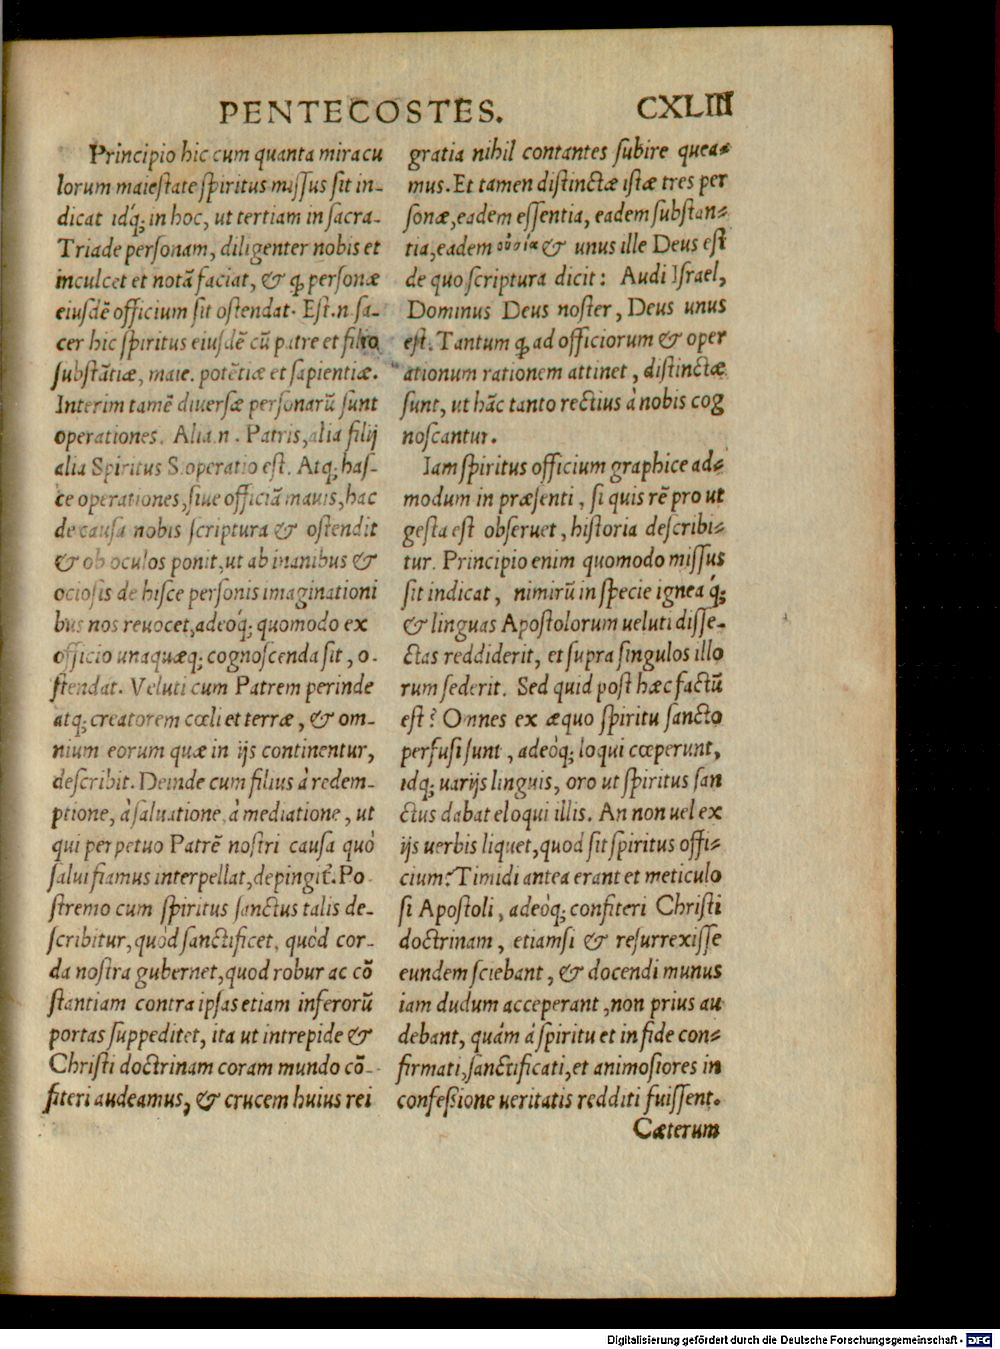 PENTECOSTES. CXLIII
Principio hic cum quanta miracu
lorum maieſtate ſpiritus miſſus ſit in-
dicat idq́; in hoc, ut tertiam in ſacra-
Triade perſonam, diligenter nobis et
inculcet et notā faciat, & ꝙ perſonæ
eiuſdē officium ſit oſtendat. Eſt.n ſa-
cer hic ſpiritus eiuſdē cū patre et filio
ſubſtātiæ, maie. potētiæ et ſapientiæ.
Interim tamē diuerſæ perſonarū ſunt
operationes. Alia.n. Patris, alia filij
alia Spiritus S.operatio eſt. Atq; haſ-
ce operationes, ſiue officiā mauis, hac
de cauſa nobis ſcriptura & oſtendit
& ob oculos ponit, ut ab inanibus &
ocioſis de hiſce perſonis imaginationi
bus nos reuocet, adeoq́; quomodo ex
officio unaquæq; cognoſcenda ſit, o-
ſtendat. Veluti cum Patrem perinde
atq; creatorem cœli et terræ, & om-
nium eorum quæ in ijs continentur,
deſcribit. Deinde cum filius à redem-
ptione, à ſaluatione, à mediatione, ut
qui perpetuo Patrē noſtri cauſa quò
ſalui fiamus interpellat, depingit̄. Po
ſtremo cum ſpiritus ſanctus talis de-
ſcribitur, quòd ſanctificet, quòd cor-
da noſtra gubernet, quod robur ac cō
ſtantiam contra ipſas etiam inferorū
portas ſuppeditet, ita ut intrepide &
Chriſti doctrinam coram mundo cō-
fiteri audeamus, & crucem huius rei
gratia nihil contantes ſubire quea-
mus. Et tamen diſtinctæ iſtæ tres per
ſonæ, eadem eſſentia, eadem ſubſtan-
tia, eadem οὐσία & unus ille Deus eſt
de quo ſcriptura dicit: Audi Iſrael,
Dominus Deus noſter, Deus unus
eſt. Tantum ꝙ ad officiorum & oper
ationum rationem attinet, diſtinctæ
ſunt, ut hāc tanto rectius à nobis cog
noſcantur.
Iam ſpiritus officium graphice ad-
modum in præſenti, ſi quis rē pro ut
geſta eſt obſeruet, hiſtoria deſcribi-
tur. Principio enim quomodo miſſus
ſit indicat, nimirū in ſpecie ignea q́;
& linguas Apoſtolorum ueluti diſſe-
ctas reddiderit, et ſupra ſingulos illo
rum ſederit. Sed quid poſt hæc factū
eſt? Omnes ex æquo ſpiritu ſancto
perfuſi ſunt, adeòq; loqui cœperunt,
idq; uarijs linguis, oro ut ſpiritus ſan
ctus dabat eloqui illis. An non uel ex
ijs uerbis liquet, quod ſit ſpiritus offi-
cium? Timidi antea erant et meticulo
ſi Apoſtoli, adeòq; confiteri Chriſti
doctrinam, etiamſi & reſurrexiſſe
eundem ſciebant, & docendi munus
iam dudum acceperant, non prius au
debant, quám à ſpiritu et in fide con-
firmati, ſanctificati, et animoſiores in
confeſſione ueritatis redditi fuiſſent.
Cæterum
Digitalisierung gefördert durch die Deutsche Forschungsgemeinschaft - DFG